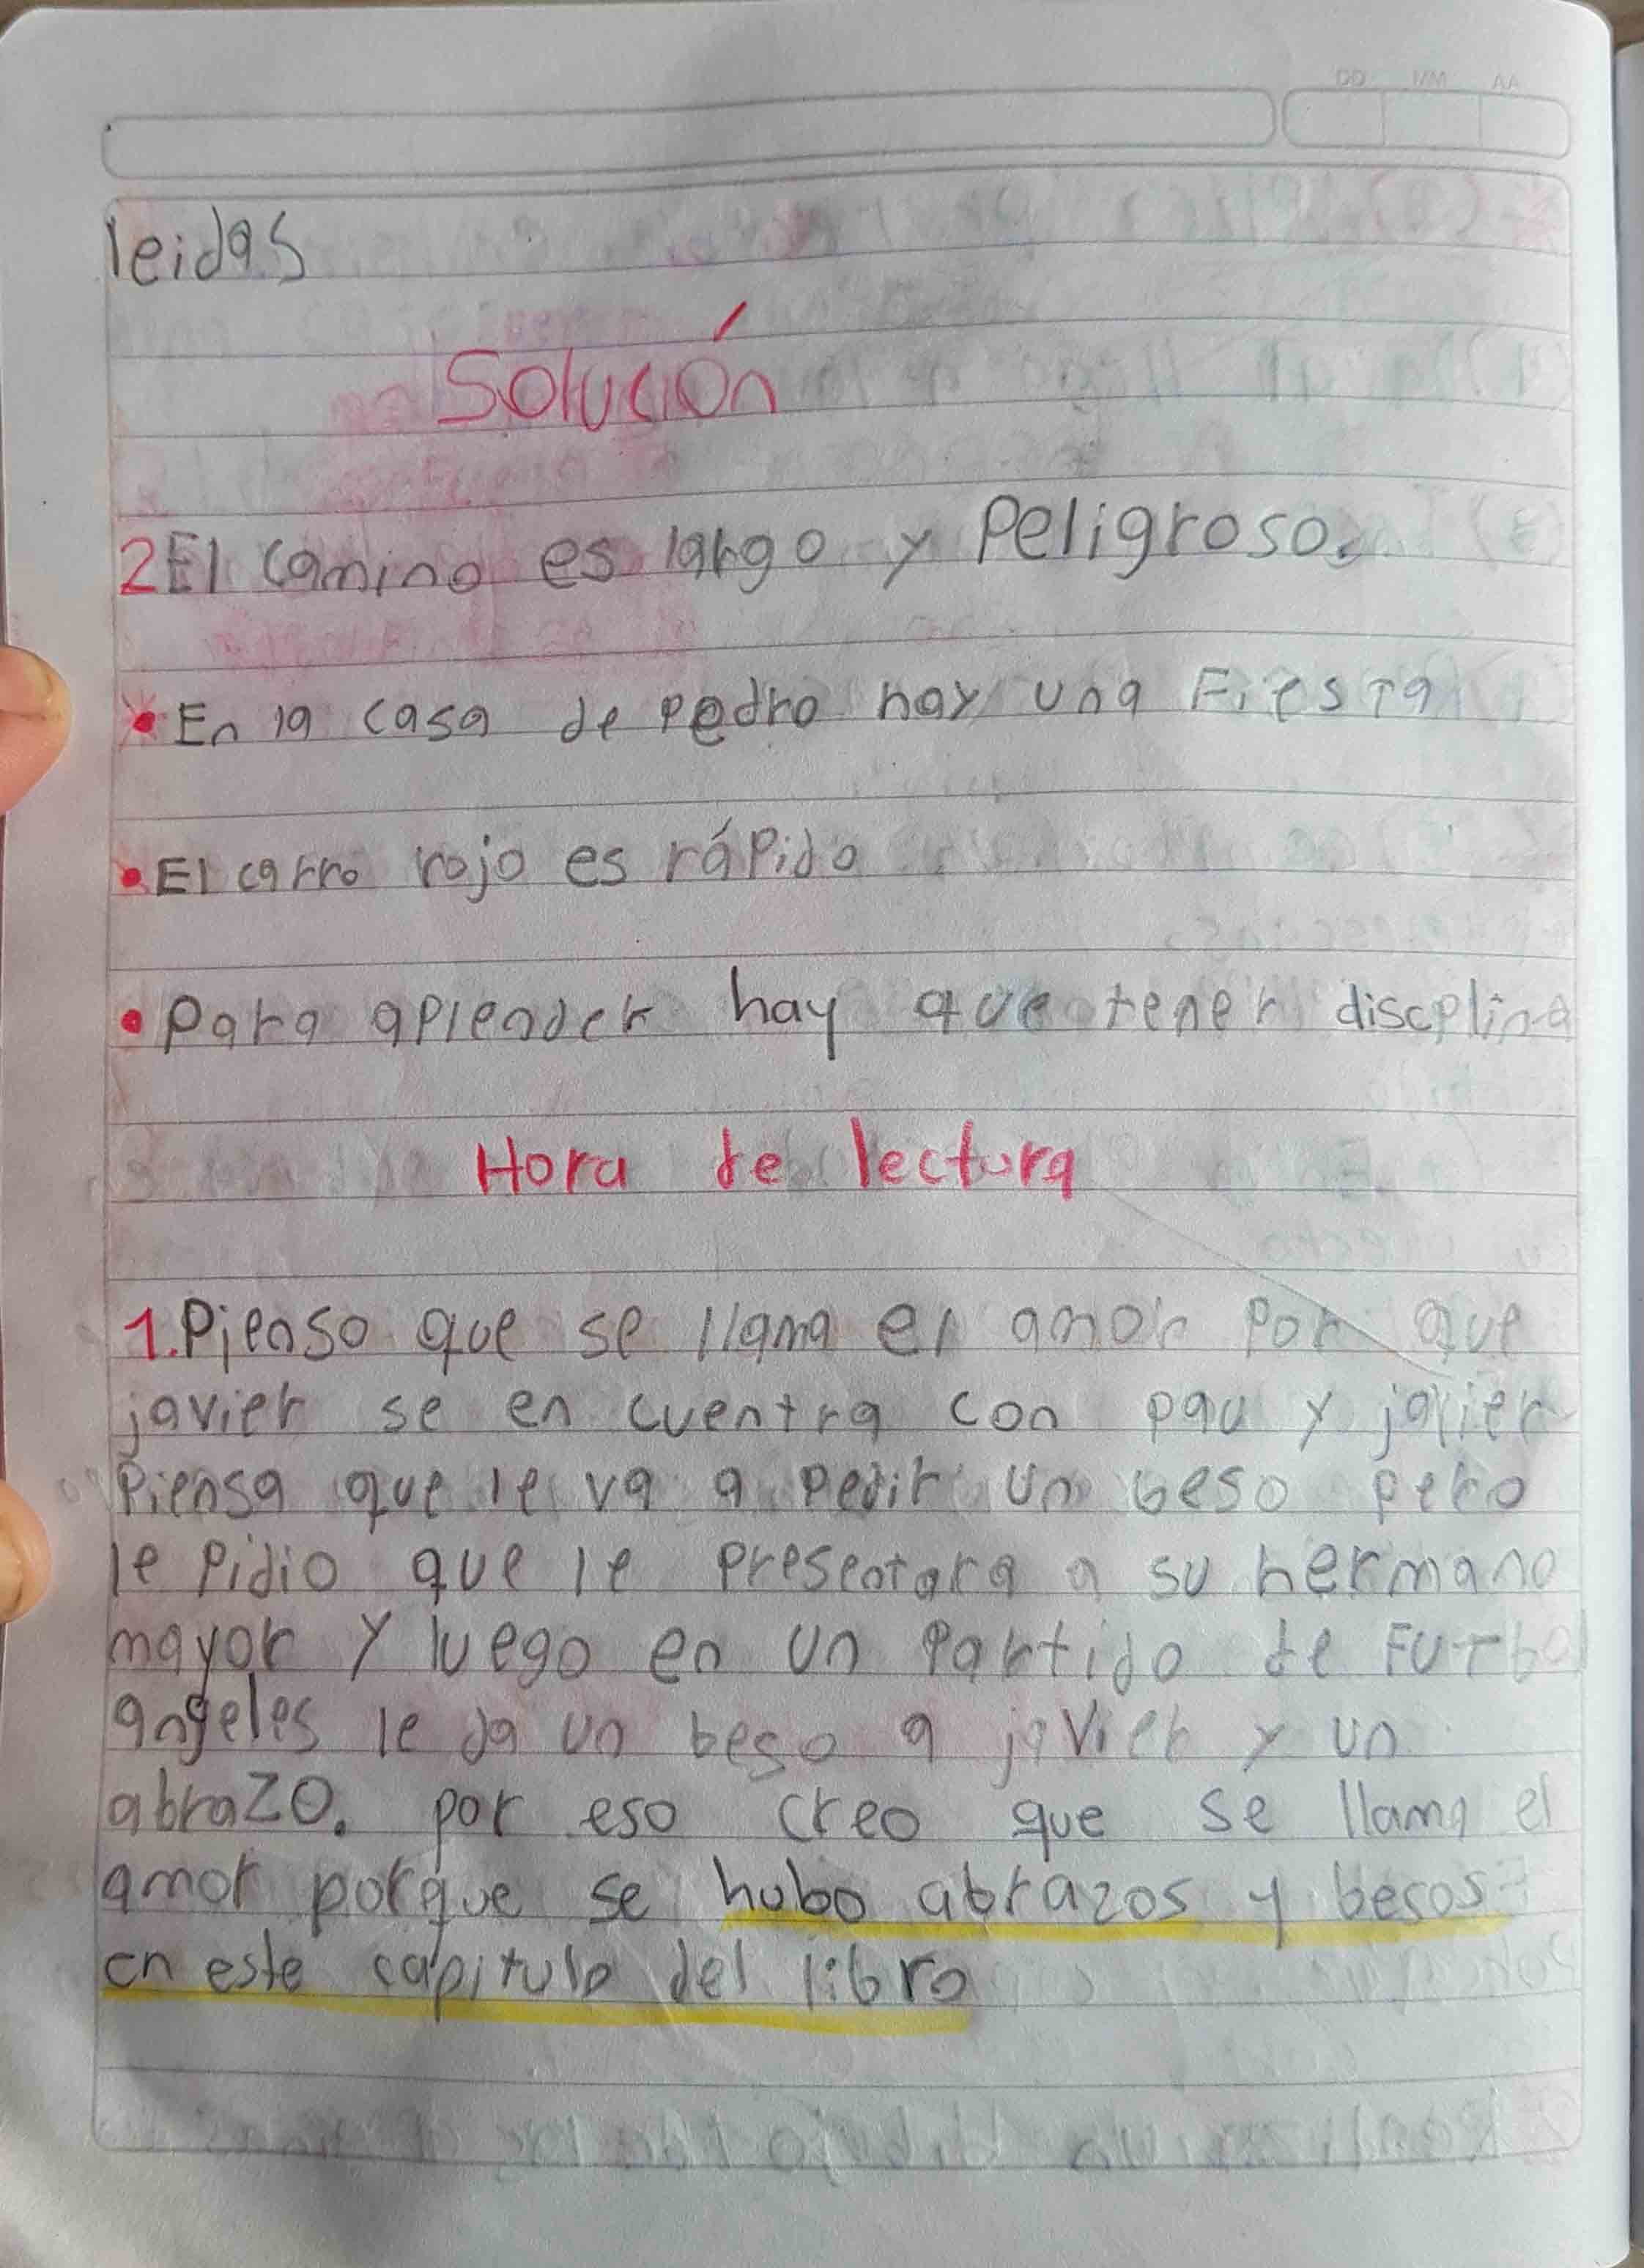 DD MM AA
leidas
Solución
2 El camino es largo y Peligroso.
• En la casa de pedro hay una Fiesta
• El carro rojo es rápido
• para aplender hay que tener discplina
Hora de lectura
1. Pienso que se llama el amor Por que
javier se en cuentra con pau y javier
Piensa que le va a pedir un beso pero
le Pidio que le presentara a su hermano
mayor y luego en un Partido de Futbol
angeles le da un beso a javier y un
abrazo. por eso creo que se llama el
amor porque se hubo abrazos y besos
en este capitulo del libro